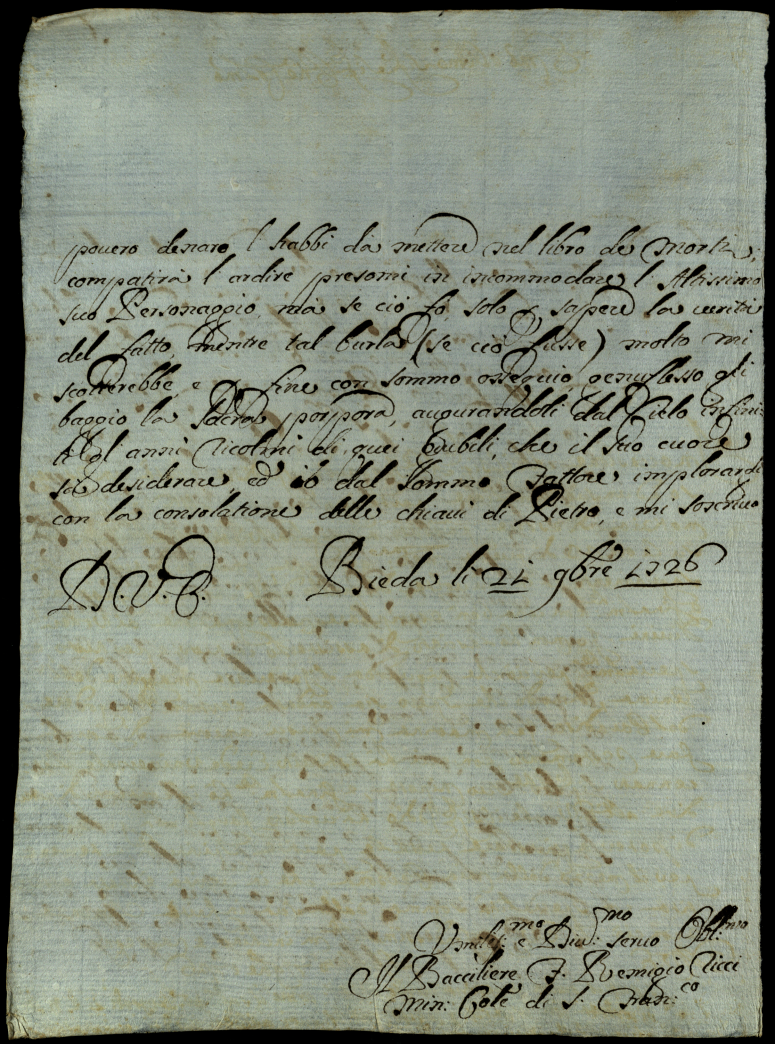 povero denaro l habbi da mettere nel libro de morti;
compatirà l ardire presomi in incommodare l Altissimo
suo Personaggio, mà se ciò fò solo p sapere la verità
del fatto, mentre tal burla (se ciò fusse) molto mi
scotterebbe, e p fine con sommo ossequio genuflesso gli
baggio la Sacra porpora, augurandoli dal Cielo infini:
ti gl anni ricolmi di quei Giubili, che il suo cuore
sà desiderare, ed io dal Sommo Fattore implorarli
con la consolatione delle chiavi di Pietro, e mi soscrivo
D. V. E. Bieda li 21 9bre 1726
Umiliss:mo e Div:mo servo Obl:mo
Il Bacciliere F. Remigio Ricci
Min: Cole di S. Fran:co